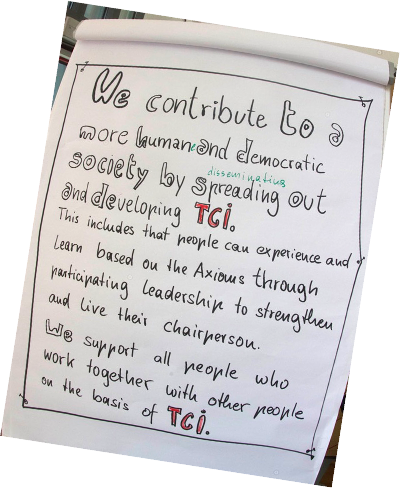 We contribute to a
more humane and democratic
disseminating
society by spreading out
and developing TCI.
This includes that people can experience and
learn based on the Axioms through
participating leadership to strengthen
and live their chairperson.
We support all people who
work together with other people
on the basis of TCI.